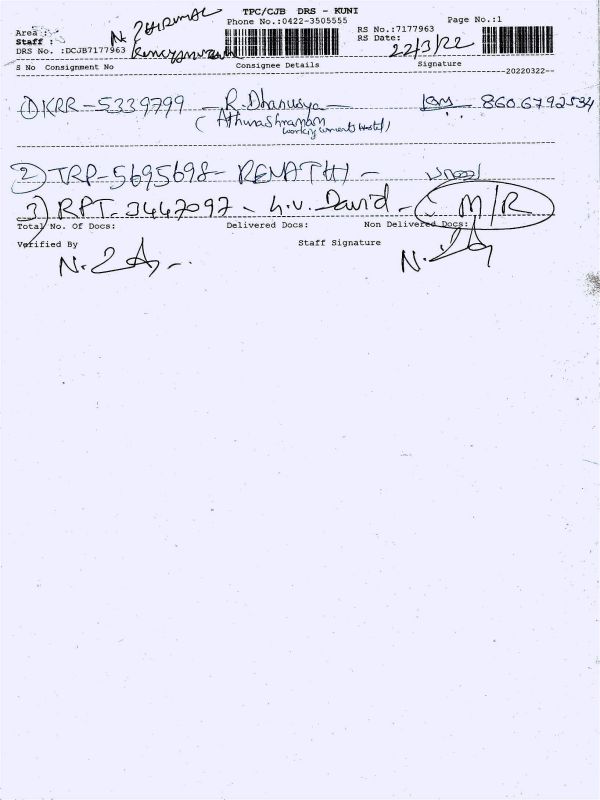 TPC/CJB DRS - KUNI
Phone No.:0422-3505555 Page No.:1
Area :
Staff : N.
RS No.:7177963
DRS No. :DCJB7177963
RS Date: 22/3/22
S No Consignment No Consignee Details Signature
20220322
1 KRR-5339799 - R. Dhanusya - 8606792534
(Athurashramam
working womens Hostel)
2) TRP-5695698- RENATHI -
3) RPT-3447097 - h.v. David - M/R
Total No. Of Docs: Delivered Docs: Non Delivered Docs:
Verified By Staff Signature